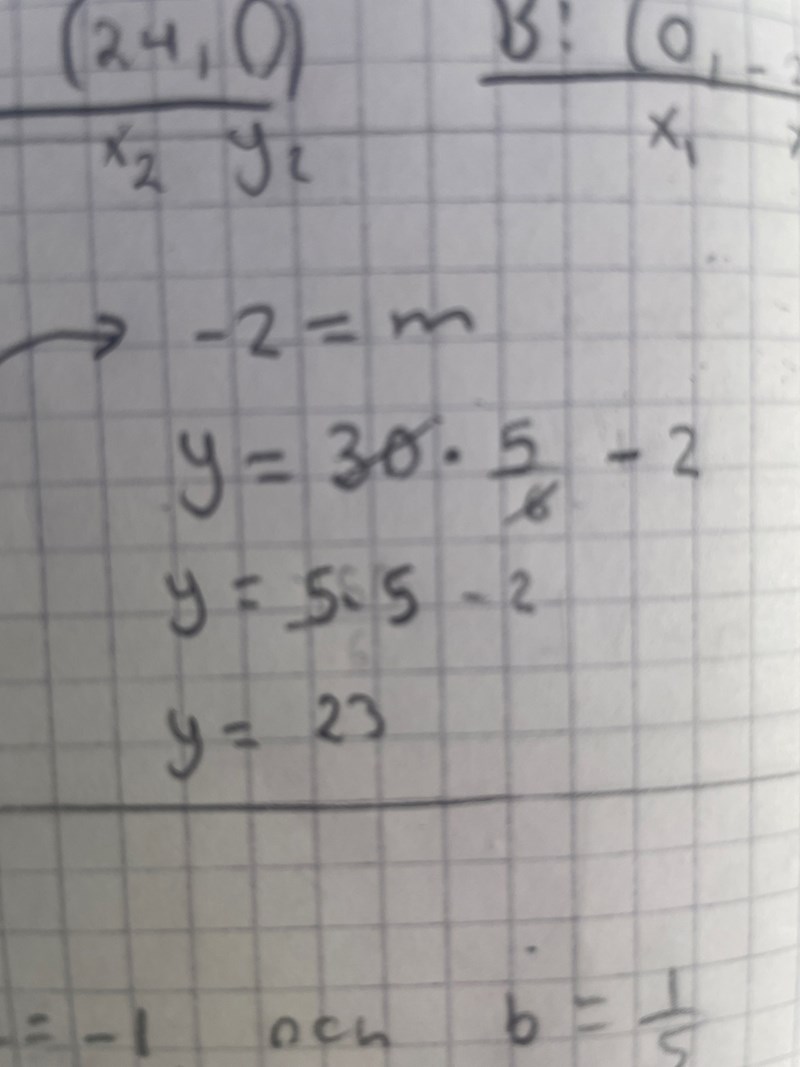 (24, 0) B: (0, -
x₂ y₂ x₁
→ -2 = m
y = 30 · 5/6 - 2
y = 5 · 5 - 2
y = 23
= -1 och b = 1/5